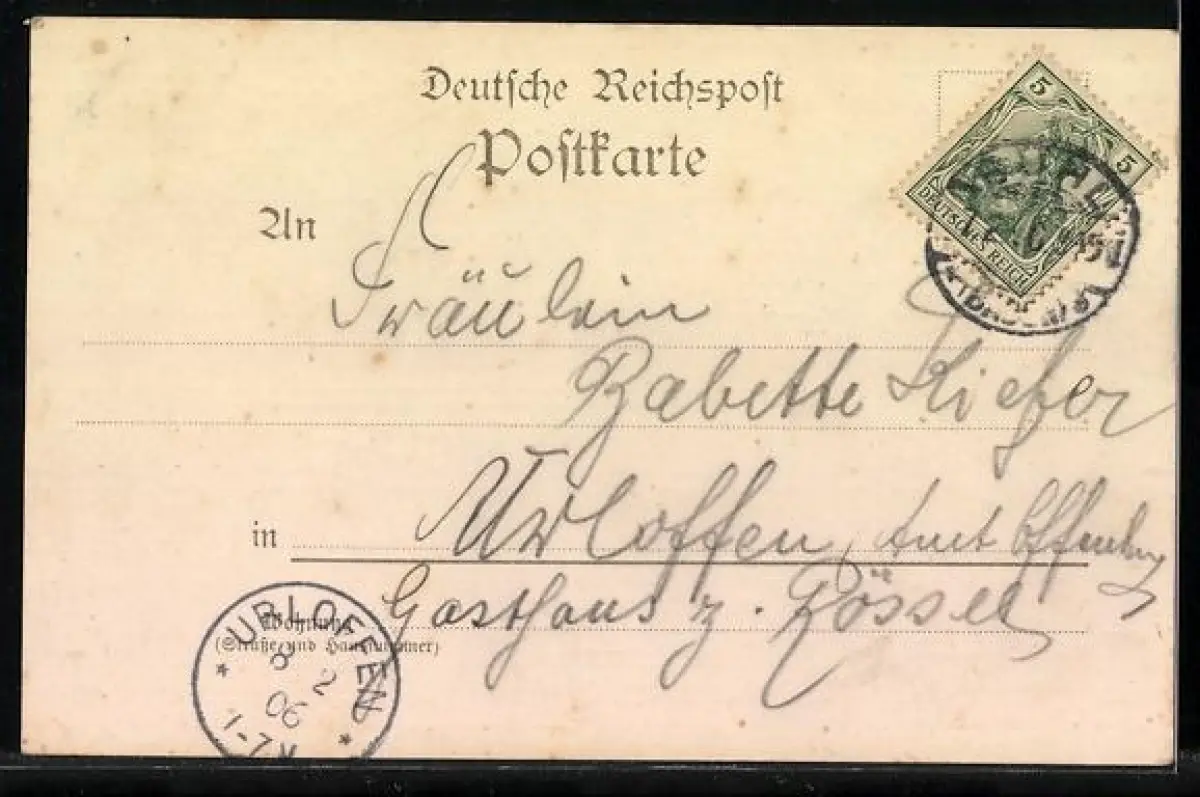 Deutsche Reichspost
Postkarte
5
5
DEUTSCHES REICH
An
Fräulein
Babette Kiefer
in Urloffen, Amt Offenburg
Gasthaus z. Rössel
Wohnung
(Straße und Hausnummer)
URLOFFEN
8 2
06
1-7 N